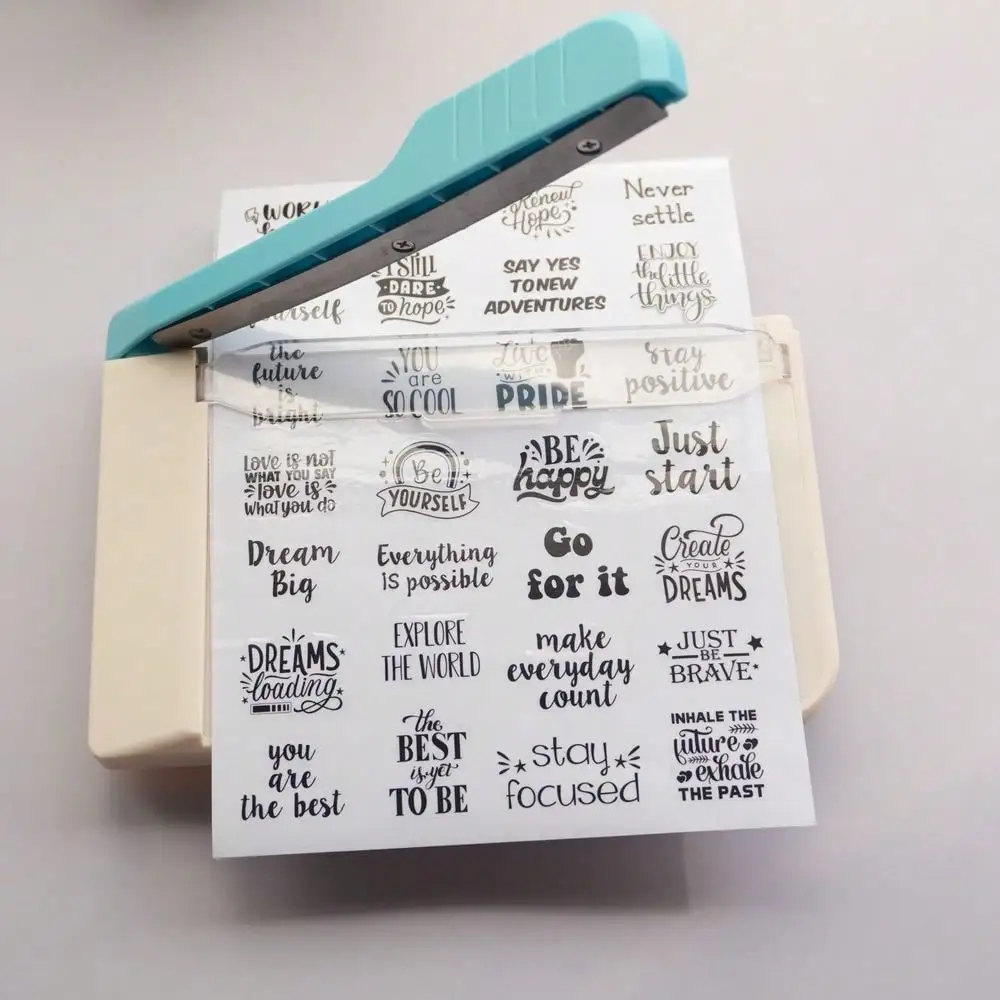 Renew
Hope
Never
settle
I STILL
DARE
TO hope
SAY YES
TO NEW
ADVENTURES
ENJOY
the little
things
the
future
is
bright
YOU
are
SO COOL
Live
WITH
PRIDE
Stay
positive
LOVE IS NOT
WHAT YOU SAY
love is
what you do
Be
YOURSELF
BE
happy
Just
start
Dream
Big
Everything
is possible
Go
for it
Create
YOUR
DREAMS
DREAMS
loading
EXPLORE
THE WORLD
make
everyday
count
JUST
BE
BRAVE
you
are
the best
the
BEST
is yet
TO BE
stay
focused
INHALE THE
future
exhale
THE PAST